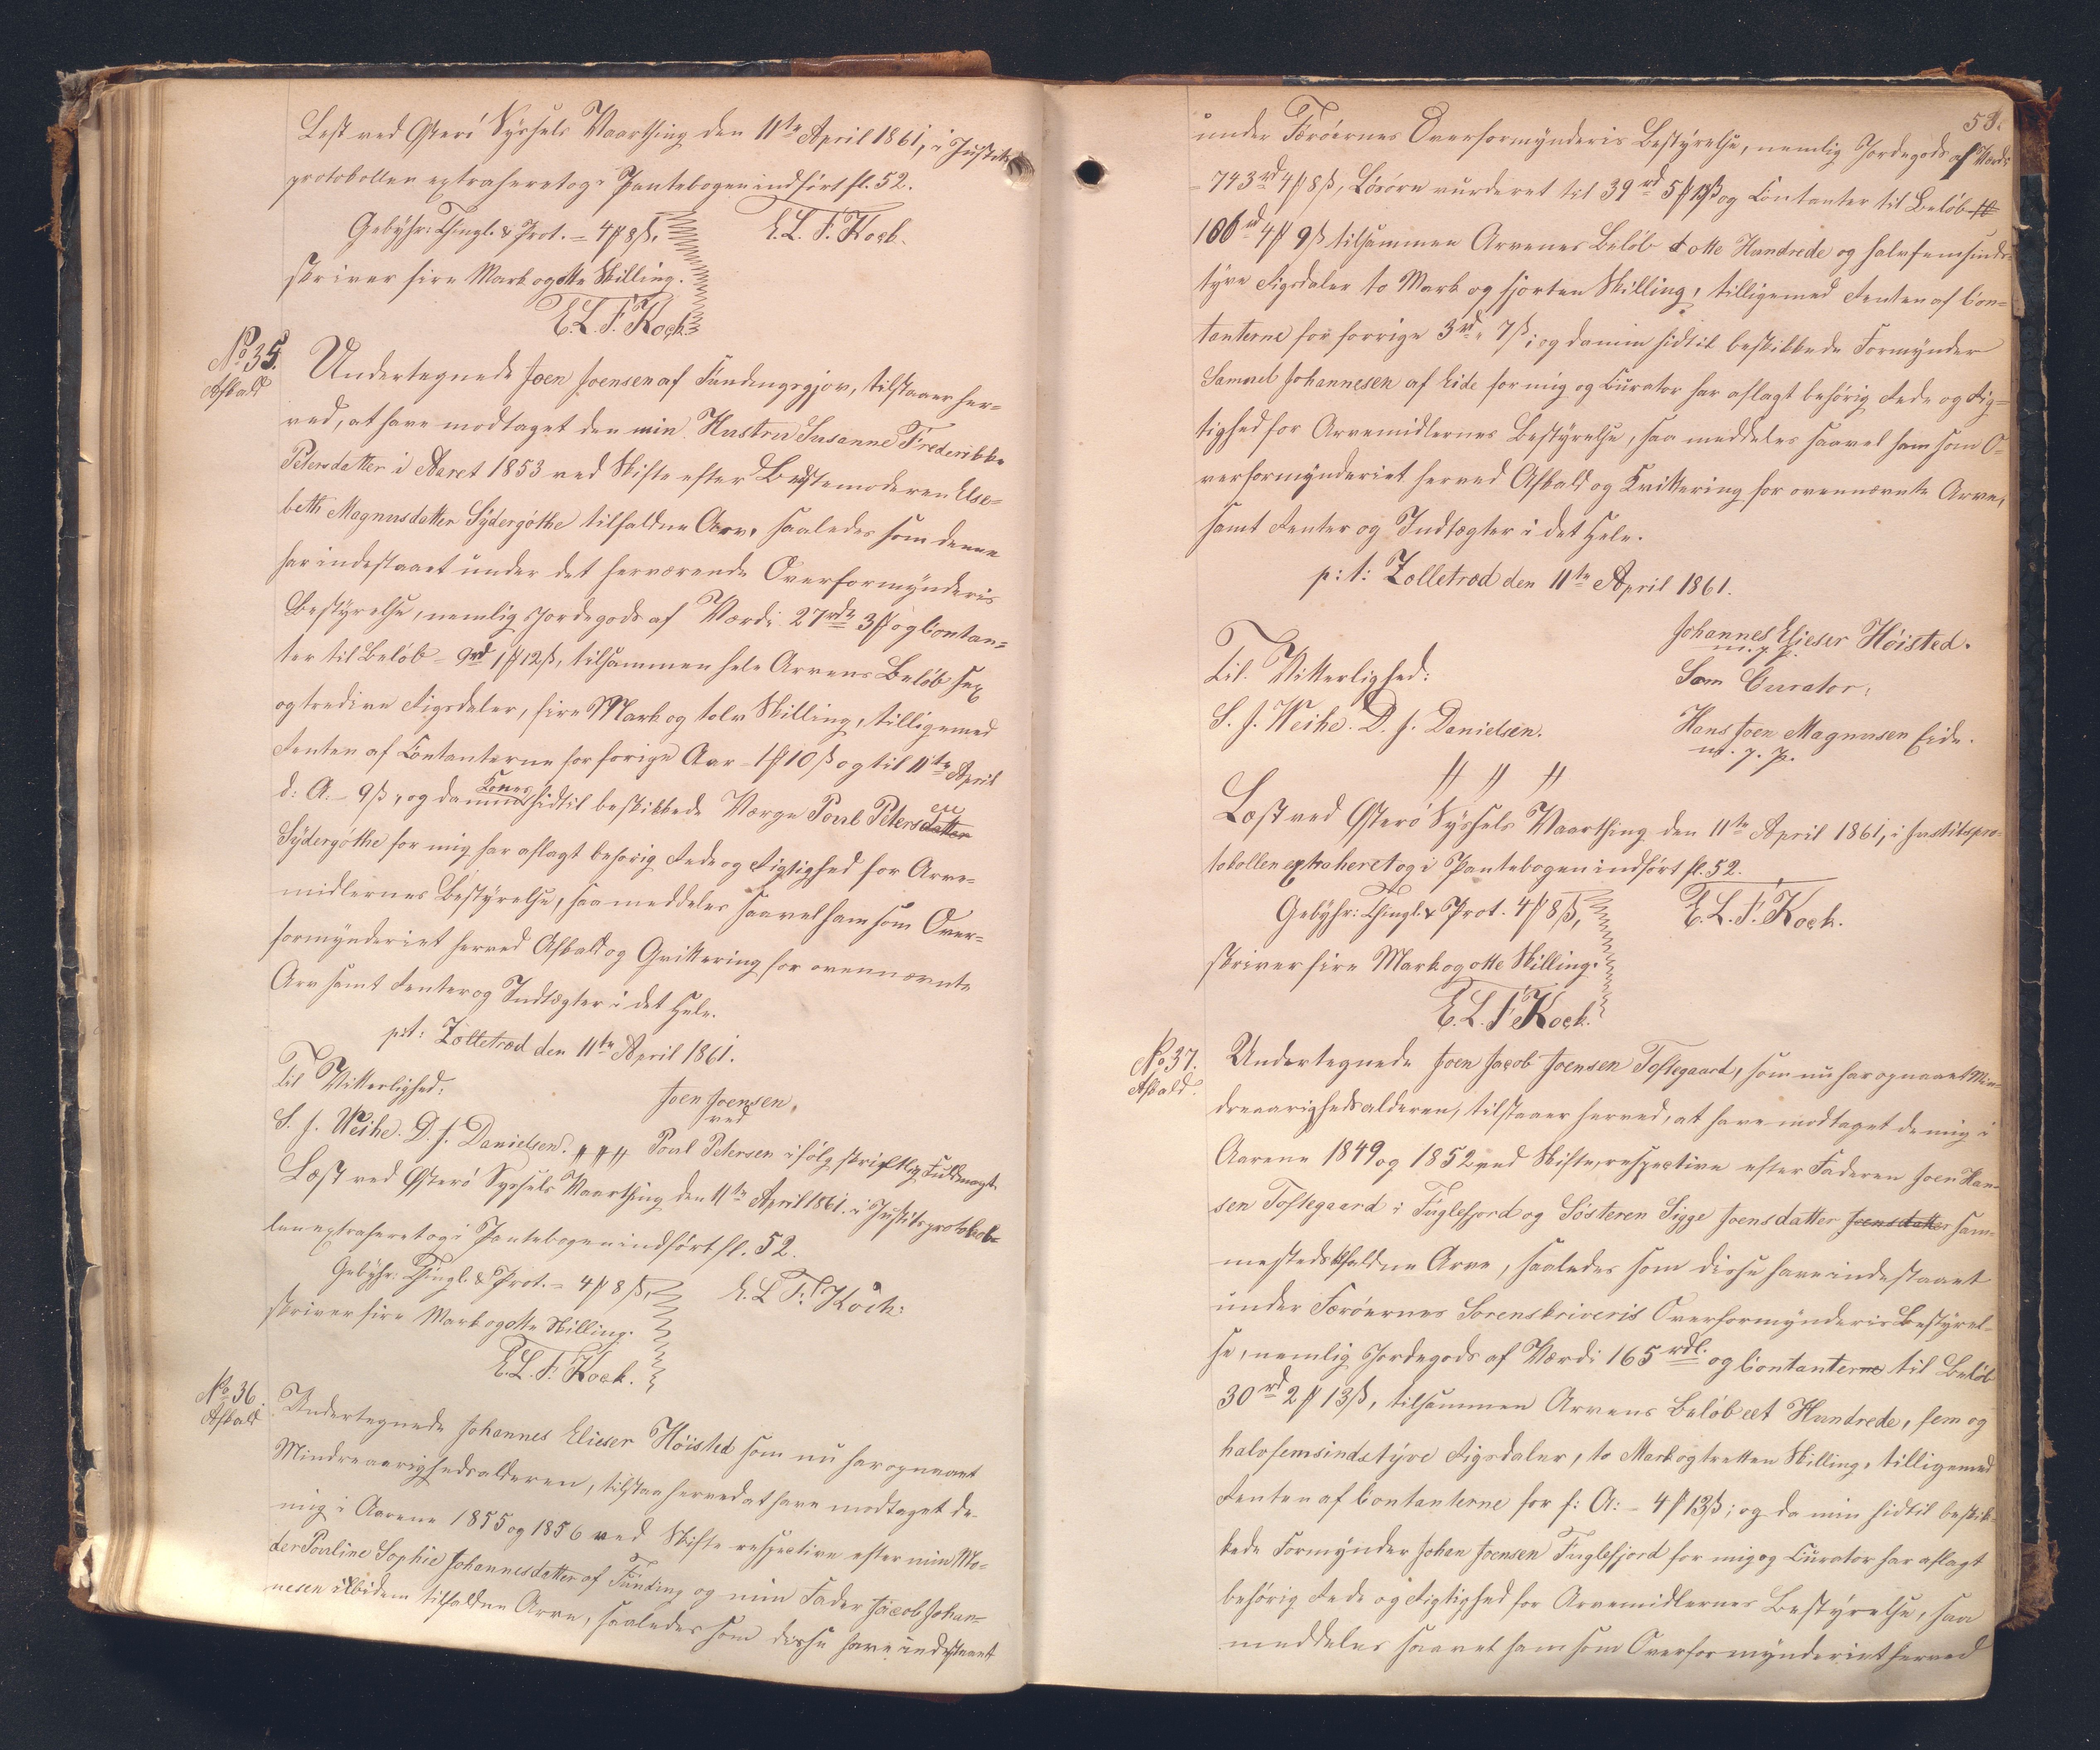 Læst ved Österö Syssels Vaarthing den 11te April 1861, i Justits
protokollen extraheret og i Pantebogen indfört fl. 52.
Gebyhr: Thingl. & Prot. = 4 ꟿ 8 ß,
E. L. F. Koch.
skriver fire Mark og otte Skilling.
E. L. F. Koch.
No 35.
Afkald
Undertegnede Joen Joensen af Fundengsgjov, tilstaaer her=
ved, at have modtaget den min Hustru Susanne Frederikke
Petersdatter i Aaret 1853 ved Skifte efter Bedstemoderen Else=
beth Magnusdatter Sydergöthe tilfaldne Arv, saaledes som denne
har indestaaet under det herværende Overformynderis
Bestyrelse, nemlig Jordegods af Værdi 27 rdr 3 ꟿ og Contan=
ter til Belöb = 9 rd 1 ꟿ 12 ß, tilsammen hele Arvens Belöb sex
og tredive Rigsdaler, fire Mark og tolv Skilling, tilligemed
Renten af Contanterne for forrige Aar = 1 ꟿ 10 ß og til 11te April
d: A. = 9 ß, og da min Kones hidtil beskikkede Værge Poul Petersen
Sydergöthe for mig har aflagt behörig Rede og Rigtighed for Arve=
midlernes Bestyrelse, saa meddeles saavel ham som Over=
formynderiet herved Afkald og Qvittering for ovennævnte
Arv samt Renter og Indtægter i det Hele.
p: t: Zolletrød den 11te April 1861.
Til Vitterlighed:
Joen Joensen,
ved
S. J. Weihe. D. J. Danielsen. Poul Petersen ifölg skriftlig Fuldmagt.
Læst ved Österö Syssels Vaarthing den 11te April 1861. i Justitsprotokol=
len extraheret og i Pantebogen indfört fl. 52.
Gebyhr: Thingl. & Prot. = 4 ꟿ 8 ß,
E. L. F. Koch:
skriver fire Mark og otte Skilling.
E. L. F. Koch.
No 36.
Afkald
Undertegnede Johannes Elieser Höisted som nu har opnaaet
Mindreaarighedsalderen, tilstaa herved at have modtaget de
mig i Aarene 1855 og 1856 ved Skifte respective efter min Mo=
der Pouline Sophie Johannesdatter af Funding og min Fader Jacob Johan=
nesen ibidem tilfaldne Arve, saaledes som disse have indestaaet
53.
under Færöernes Overformynderis Bestyrelse, nemlig Jordegods af Værdi
= 743 rd 4 ꟿ 8 ß, Lösöre vurderet til 39 rd 5 ꟿ 13 ß og Contanter til Belöb
106 rd 4 ꟿ 9 ß tilsammen Arvenes Belöb otte Hundrede og halvfemsinds=
tyve Rigsdaler to Mark og fjorten Skilling, tilligemed Renten af Con=
tanterne for forrige 3 rd " 7 ß; og da min hidtil beskikkede Formynder
Samuel Johannesen af Eide for mig og Curator har aflagt behörig Rede og Rig=
tighed for Arvemidlernes Bestyrelse, saa meddeles saavel ham som O=
verformynderiet herved Afkald og Kvittering for ovennævnte Arve,
samt Renter og Indtægter i det Hele.
p: t: Zolletrød den 11te April 1861.
Johannes Elieser Höisted.
m. p. p.
Til Vitterlighed:
Som Curator:
S. J. Weihe. D. J. Danielsen.
Hans Joen Magnusen Eide.
m. p. p.
Læst ved Österö Syssels Vaarthing den 11te April 1861, i Justitspro=
tokollen extraheret og i Pantebogen indfört fl. 52.
Gebyhr: Thingl. & Prot. 4 ꟿ 8 ß,
E. L. F. Koch.
skriver fire Mark og otte Skilling.
E. L. F. Koch.
No 37.
Afkald.
Undertegnede Joen Jacob Joensen Toftegaard, som nu har opnaaet Min=
dreaarighedsalderen, tilstaaer herved, at have modtaget de mig i
Aarene 1849 og 1852 ved Skifte, respective efter Faderen Joen Han=
sen Toftegaard i Fuglefjord og Sösteren Sigge Joensdatter Joensdatter sam=
mesteds tilfaldne Arve, saaledes som disse have indestaaet
under Færöernes Sorenskriveris Overformynderis Bestyrel=
se, nemlig Jordegods af Værdi 165 rdl. og Contanterne til Belöb
30 rd 2 ꟿ 13 ß, tilsammen Arvens Belöb eet Hundrede, fem og
halvfemsindstyve Rigsdaler, to Mark og tretten Skilling, tilligemed
Renten af Contanterne for f: A: = 4 ꟿ 13 ß; og da min hidtil beskik=
kede Formynder Johan Joensen Fuglefjord for mig og Curator har aflagt
behörig Rede og Rigtighed for Arvemidlernes Bestyrelse, saa
meddeles saavel ham som Overformynderiet herved